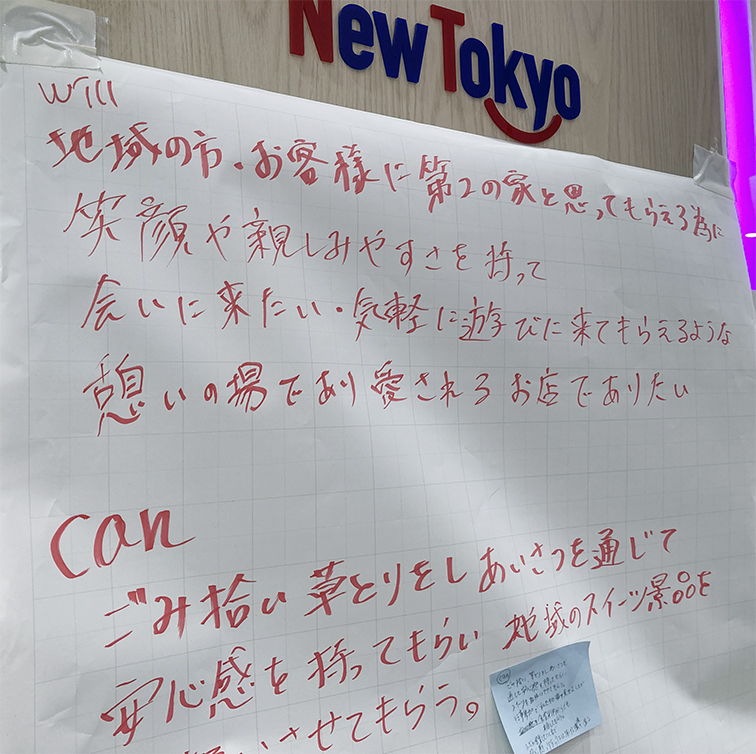 New Tokyo
will
地域の方・お客様に第2の家と思ってもらえる為に
笑顔や親しみやすさを持って
会いに来たい・気軽に遊びに来てもらえるような
憩いの場であり愛されるお店でありたい
can
ごみ拾い草とりをしあいさつを通じて
安心感を持ってもらい地域のスイーツ景品を
いさせてもらう。
can